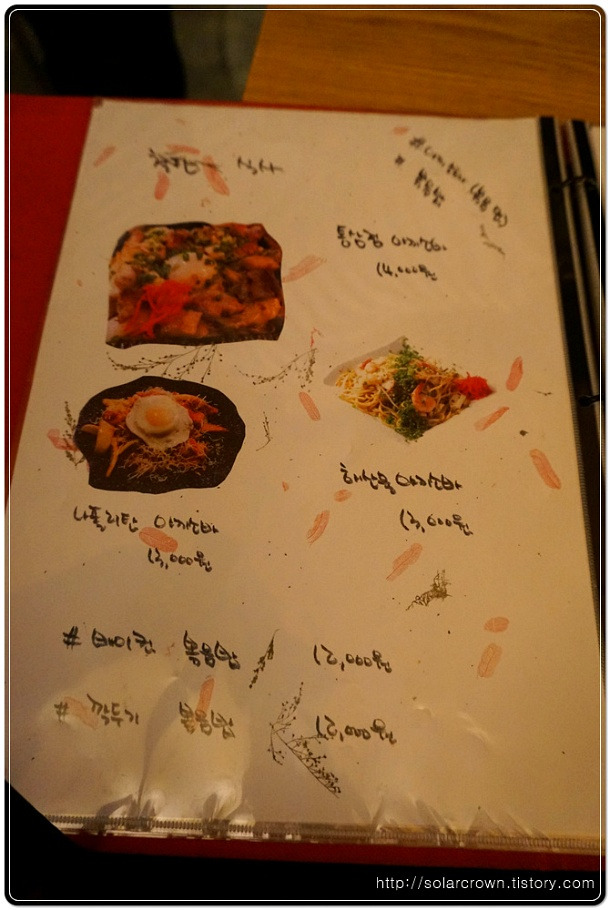 # (볶음면)
# 볶음밥
통삼겹 야끼소바
14,000원
해산물 야끼소바
13,000원
나폴리탄 야끼소바
13,000원
# 베이컨 볶음밥 12,000원
# 깍두기 볶음밥 12,000원
http://solarcrown.tistory.com